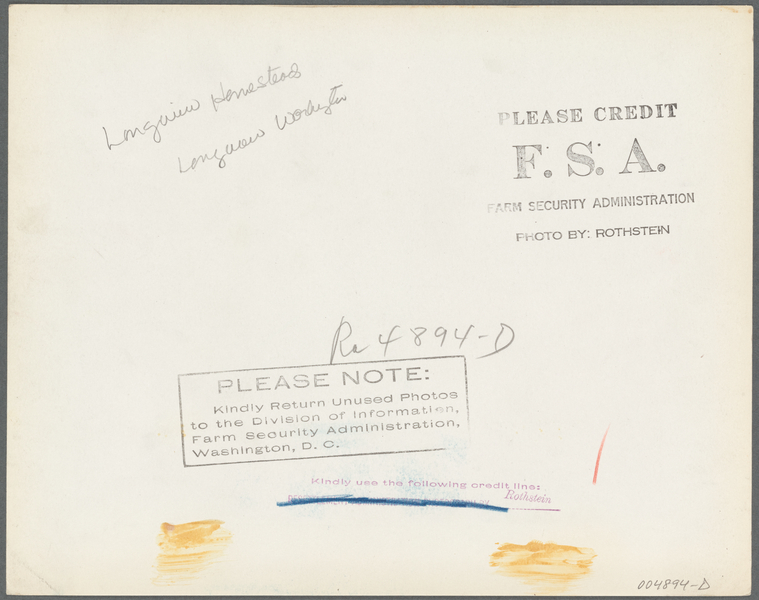 Longview Homesteads
Longview Washington
PLEASE CREDIT
F. S. A.
FARM SECURITY ADMINISTRATION
PHOTO BY: ROTHSTEIN
Ra 4894-D
PLEASE NOTE:
Kindly Return Unused Photos
to the Division of Information,
Farm Security Administration,
Washington, D. C.
Kindly use the following credit line:
Rothstein
004894-D